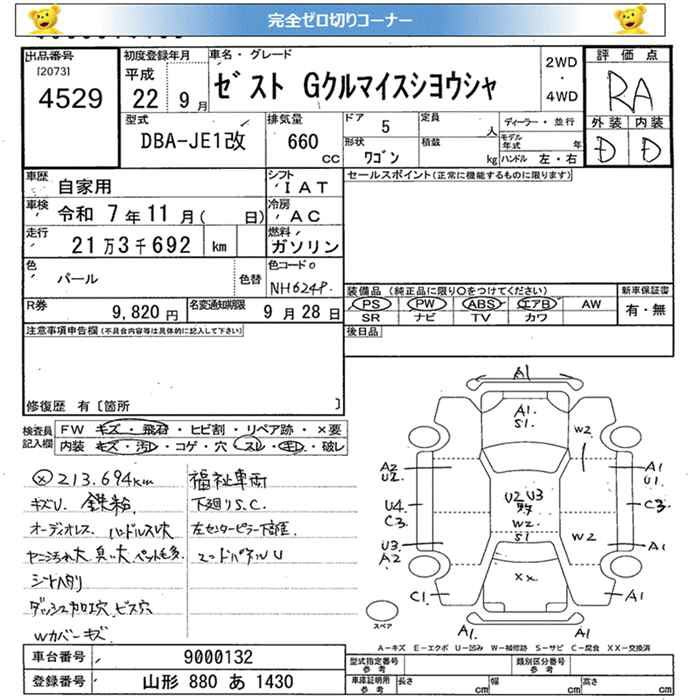 完全ゼロ切りコーナー
出品番号
[2073]
4529
初度登録年月
平成
22年9月
車名・グレード
ゼスト Gクルマイスシヨウシャ
2WD
・
4WD
評価点
RA
外装 内装
D D
型式
DBA-JE1改
排気量
660
CC
ドア 5
形状
ワゴン
定員
人
積載
kg
ディーラー・並行
モデル年式 年
ハンドル 左・右
車歴
自家用
シフト
IAT
車検
令和 7年11月( 日)
冷房
AC
走行
21万3千692 km
燃料
ガソリン
色
パール
色替
色コードNo
NH624P
R券
9,820円
名変通知期限
9月28日
セールスポイント(正常に機能するものに限ります)
装備品 (純正品に限り○をつけてください)
PS PW ABS エアB AW
SR ナビ TV カワ
新車保証書
有・無
後日品
注意事項申告欄(不具合内容等は具体的に記入して下さい)
修復歴 有〔箇所 〕
検査員記入欄
FW キズ・飛石・ヒビ割・リペア跡・×要
内装 キズ・汚レ・コゲ・穴・スレ・キレ・破レ
213.694km
キズU. 鉄粉
オーディオレス ハンドルスレ大
ヤニ汚れ大 臭い大 ペット毛多
シートヘタリ
ダッシュ加工穴 ビス穴
Wカバーキズ
福祉車両
下廻りS.C.
左センターピラー下部歪
エンドパネルU
A1
A1.
S1.
W2
A2
U2
A1
U1
U4
C3
C3
U2 U3
W2
S1
W2
U3
A2
A1
XX
C1
A1
A1
A1
スペア
A-キズ E-エクボ U-凹み W-補修跡 S-サビ C-腐食 XX-交換済
車台番号
9000132
登録番号
山形 880 あ 1430
型式指定番号
参考
類別区分番号
参考
車庫証明所
参考
長さ cm
幅 cm
高さ cm